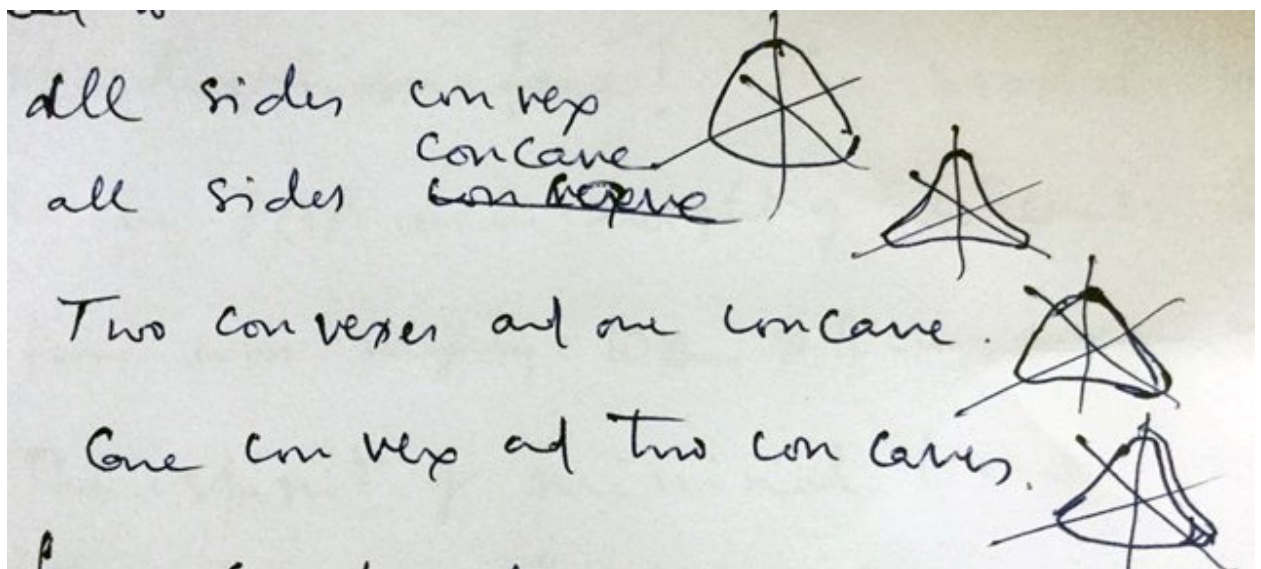 all sides convex
concave
all sides
Two convexes and one concave.
One convex ad two concaves.